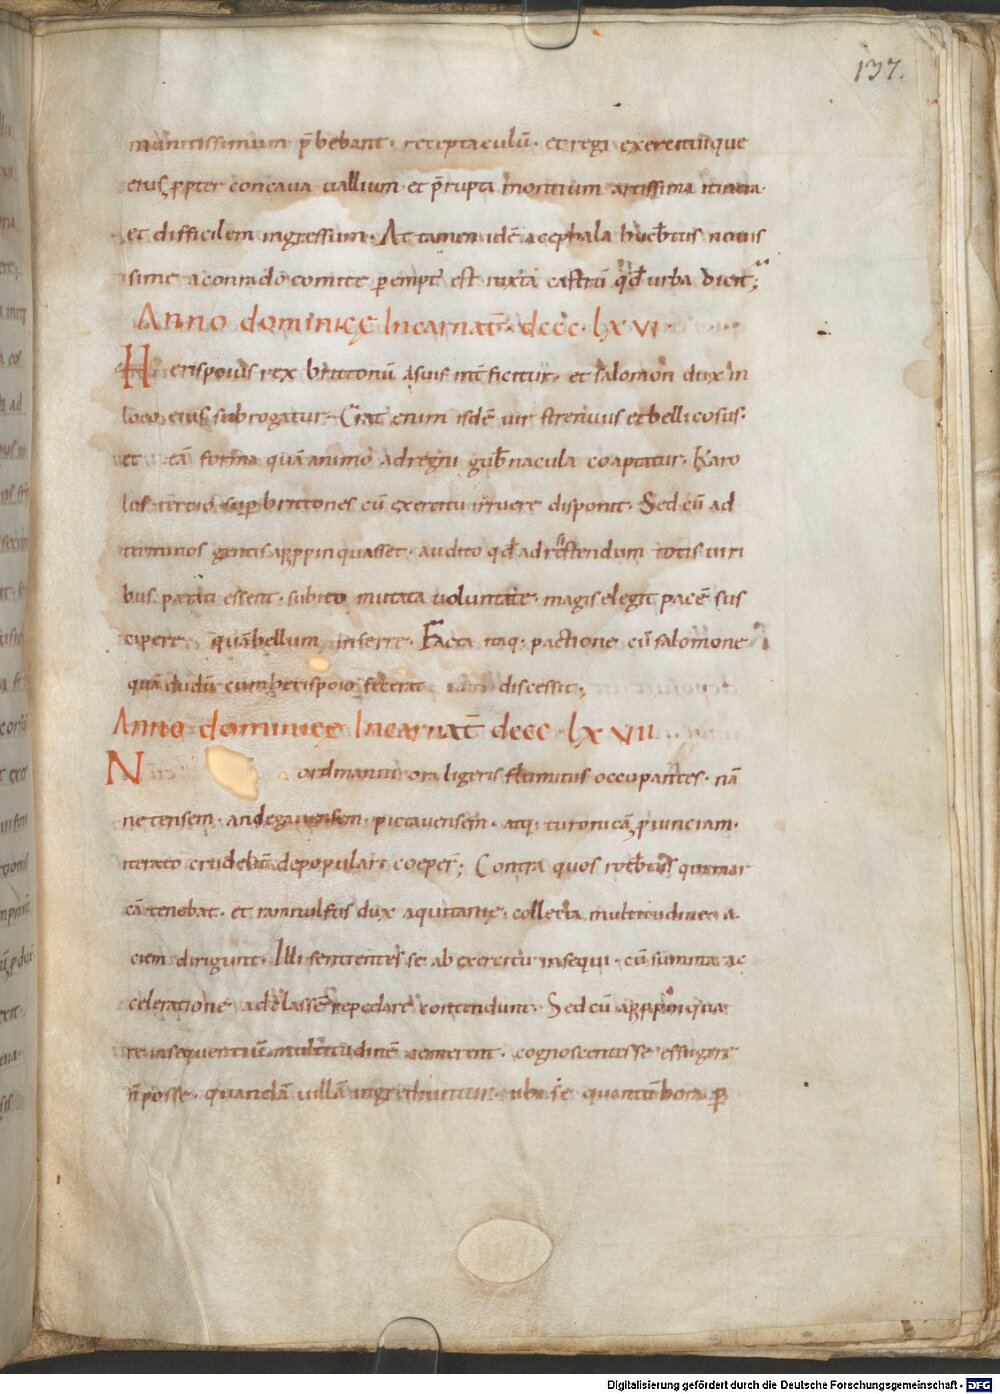 137.
munitissimum p̄bebant. receptaculū. et regi exercituique
eius ꝓpter concaua uallium et p̄rupta montium artissima itinera.
et difficilem ingressum. At tamen idē acephala hucb̄tus nouis
sime a conrado comite ꝑempt' est iuxta castrū qd̄ urba dicit';
Anno dominicę Incarnat̄. dccc. lxvi.
Herispoius rex brittonū a suis int̄ficitur. et salomon dux in
loco eius subrogatur. Erat enim isdē uir strenuus et bellicosus.
et tā forma quā animo ad regni gub̄nacula coaptatur. Karo
lus tercio sup brittones cū exercitu irruere disponit. Sed cū ad
terminos gentis aꝓpinquasset. audito qd̄ ad resistendum totis uiri
bus parati essent. subito mutata uoluntate. magis elegit pacē sus
cipere quā bellum inferre. Facta itaq; pactione cū salomone
quā dudū cum herispoio fecerat discessit;
Anno dominicę Incarnat̄ dccc. lxvii.
Nordmanni ora ligeris fluminis occupantes. nā
netensem. andegauensem. pictauensem. atq; turonicā ꝓuinciam.
iterato crudelit̄ depopulari coeper̄; Contra quos rotb̄tus qui mar
cā tenebat. et ramnulfus dux aquitanię. collecta multitudine. a
ciem dirigunt. Illi sentientes se ab exercitu insequi. cū summa ac
celeratione ad classē repedare contendunt. Sed cū appropinqua
re insequentiū multitudinē cernerent. cognoscentes se effugere
n̄ posse. quandā uillā ingrediuntur. ubi se quantū hora ꝑ
Digitalisierung gefördert durch die Deutsche Forschungsgemeinschaft - DFG